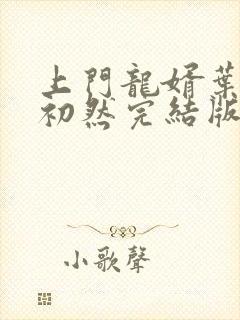 上門龍婿葉
初然完結版
小歌聲